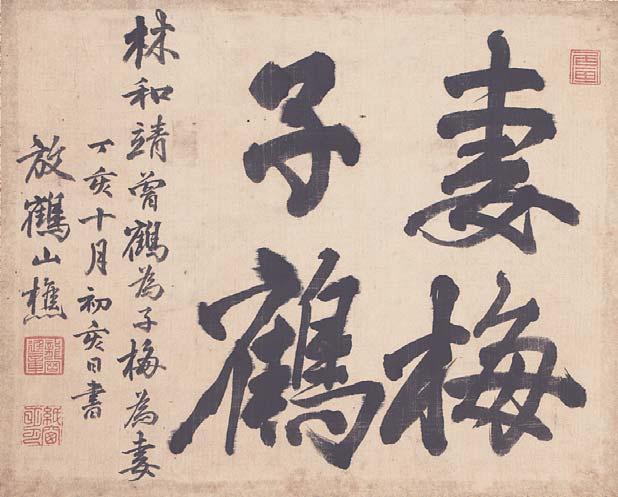 妻梅
子鶴
林和靖曾鶴為子梅為妻
丁亥十月初亥日書
放鶴山樵